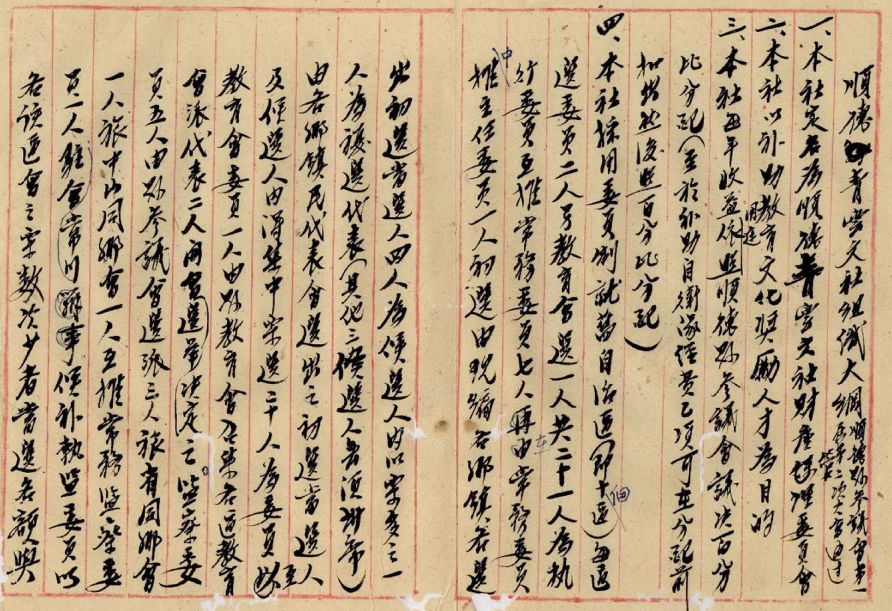 順德青雲文社組織大綱 順德縣參議會第一屆第二次大會通過
一、本社定名為順德青雲文社財產整理委員會
二、本社以補助教育文化獎勵人才為目的
三、本社每年收益依照順德縣參議會議決百分
比分配(至於補助自衛隊經費乙項可在分配前
扣撥然後照百分比分配)
四、本社採用委員制就舊自治區(即十區)每區
選委員二人另教育會選一人共二十一人為執
行委員互推常務委員七人再由常務委員
中推主任委員一人初選由現編各鄉鎮各選
出初選當選人四人為候選人內以票多之一
人為複選代表(其他三候選人無須出席)
由各鄉鎮民代表會選出之初選當選人
及候選人由得集中票選二十人為委員
教育會委員一人由縣教育會召集各區教育
會派代表二人開會選舉決定之監察委
員五人由縣參議會選派三人旅省同鄉會
一人旅中山同鄉會一人互推常務監察委
員一人駐會常川辦事候補執監委員以
各該區會之票數次少者當選名額與